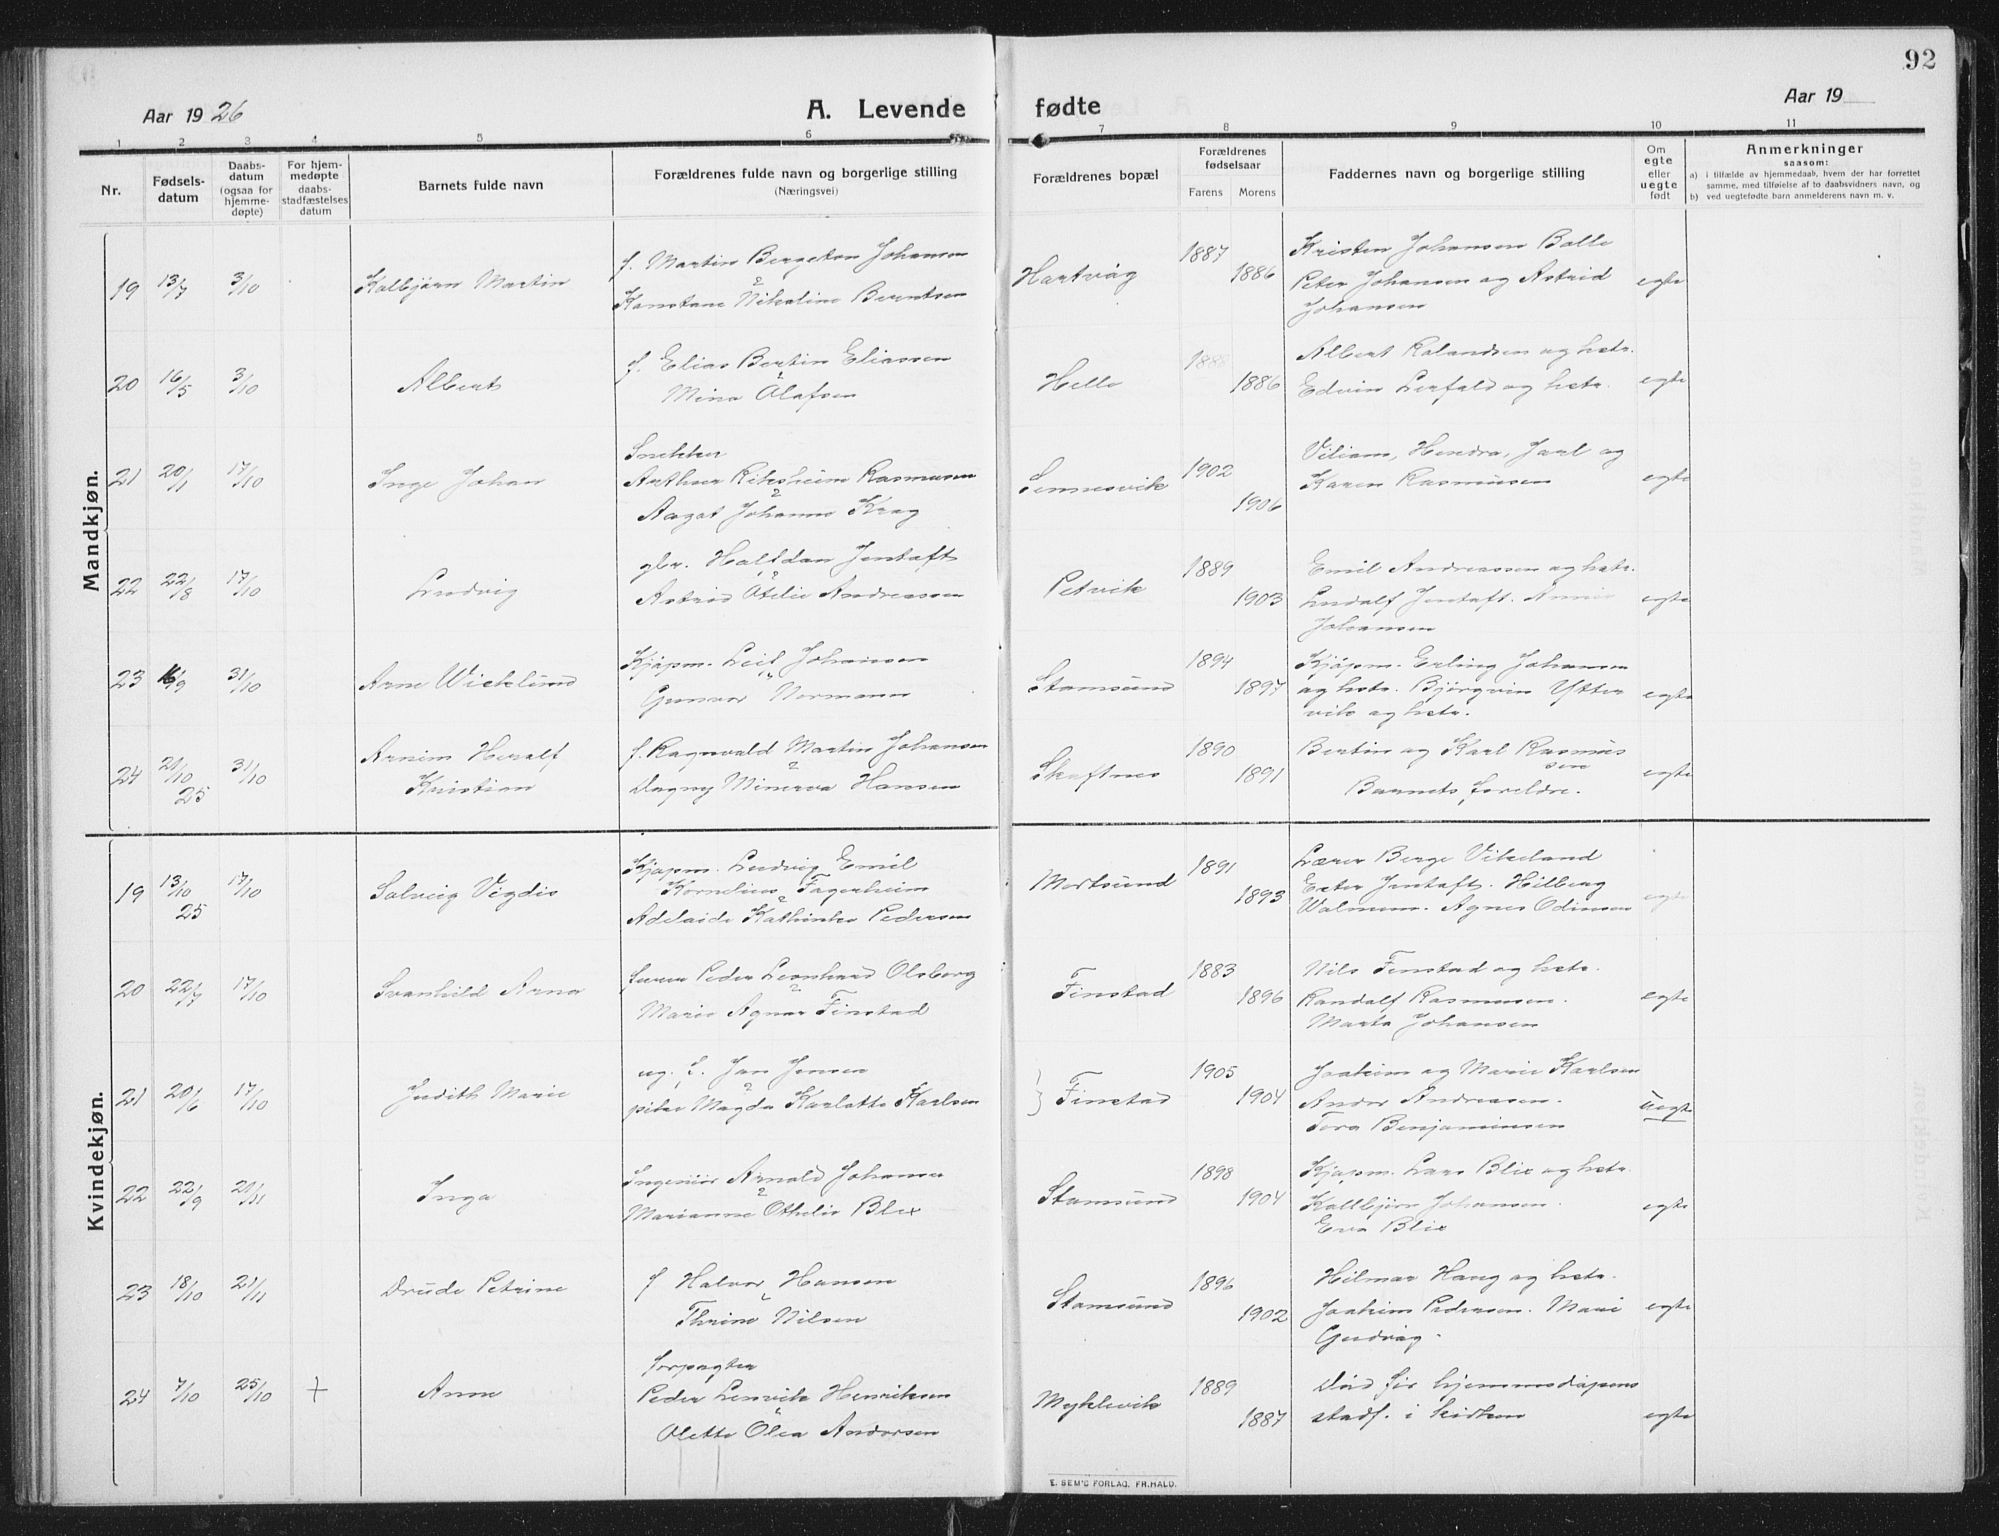 92
Aar 1926
A. Levende fødte
Aar 19
1 2 3 4 5 6 7 8 9 10 11
Nr.
Fødsels-
datum
Daabs-
datum
(ogsaa for
hjemme-
døpte)
For hjem-
medøpte
daabs-
stadfæstelses
datum
Barnets fulde navn
Forældrenes fulde navn og borgerlige stilling
(Næringsvei)
Forældrenes bopæl
Forældrenes
fødselsaar
Farens Morens
Faddernes navn og borgerlige stilling
Om
egte
eller
uegte
født
Anmerkninger
saasom:
a) i tilfælde av hjemmedaab, hvem der har forrettet
samme, med tilføielse af to daabsvidners navn, og
b) ved uegtefødte barn anmelderens navn m. v.
Mandkjøn.
19 13/7 3/10 Kolbjørn Martin
f. Martin Bergeton Johansen
Konstane Nikoline Berntsen
Hartvåg 1887 1886
Kristen Johansen Balle
Peter Johansen og Astrid
Johansen
egte
20 16/5 3/10 Albert
f. Elias Bertin Eliassen
Mina Olafsen
Helle 1888 1886
Albert Rolandsen og hstr.
Edvin Lerfald og hstr.
egte
21 20/1 17/10 Inge Johan
Snekker
Arthur Riksheim Rasmusen
Aagot Johanne Krag
Sennesvik 1902 1906
Viliam, Hendra, Jarl og
Karen Rasmusen
egte
22 22/8 17/10 Ludvig
gbr. Halfdan Jentoft
Astrid Otelie Andreassen
Petvik 1889 1903
Emil Andreassen og hstr.
Ludolf Jentoft. Annie
Johansen
egte
23 16/9 31/10 Arne Wicklund
Kjøpm. Leif Johansen
Gunvor Normann
Stamsund 1894 1897
Kjøpm. Erling Johansen
og hstr. Bjørgvin Ytter
vik og hstr.
egte
24 21/10 25 31/10 Arnim Heralf
Kristian
f. Ragnvald Martin Johansen
Dagny Minerva Hansen
Skaftnes 1890 1891
Bertin og Karl Rasmus
sen
Barnets foreldre.
egte
Kvindekjøn.
19 13/10 25 17/10 Solveig Vigdis
Kjøpm. Ludvig Emil
Kornelius Fagerheim
Adelaide Kathinka Pedersen
Mortsund 1891 1893
Lærer Berge Vikeland
Ester Jentoft. Hilberg
Walmum. Agnes Odinsen
egte
20 22/7 17/10 Svanhild Arna
furer Peder Leonhard Olsborg
Marie Agnor Finstad
Finstad 1883 1896
Nils Finstad og hstr.
Randolf Rasmussen.
Marta Johansen
egte
21 20/6 17/10 Judith Marie
ug. f. Jan Jensen
pike Magda Karlotte Karlsen
Finstad 1905 1904
Joakim og Marie Karlsen
Andor Andreasen.
Tora Benjaminsen
uegte
22 22/9 21/11 Inga
Ingeniør Arnold Johansen
Marianne Othelie Blix
Stamsund 1898 1904
Kjøpm. Lars Blix og hstr.
Kolbjørn Johansen.
Eva Blix
egte
23 18/10 21/11 Drude Petrine
f Halvor Hansen
Thrine Nilsen
Stamsund 1896 1902
Hilmar Haug og hstr.
Joakim Pedersen. Marie
Gudvåg.
egte
24 7/10 25/10 + Anne
forpagter
Peder Lenvik Henriksen
Olette Olea Andersen
Myklevik 1889 1887
Død før hjemmedåpens
stadf. i kirken
egte
E. SEM'S FORLAG, FR.HALD.